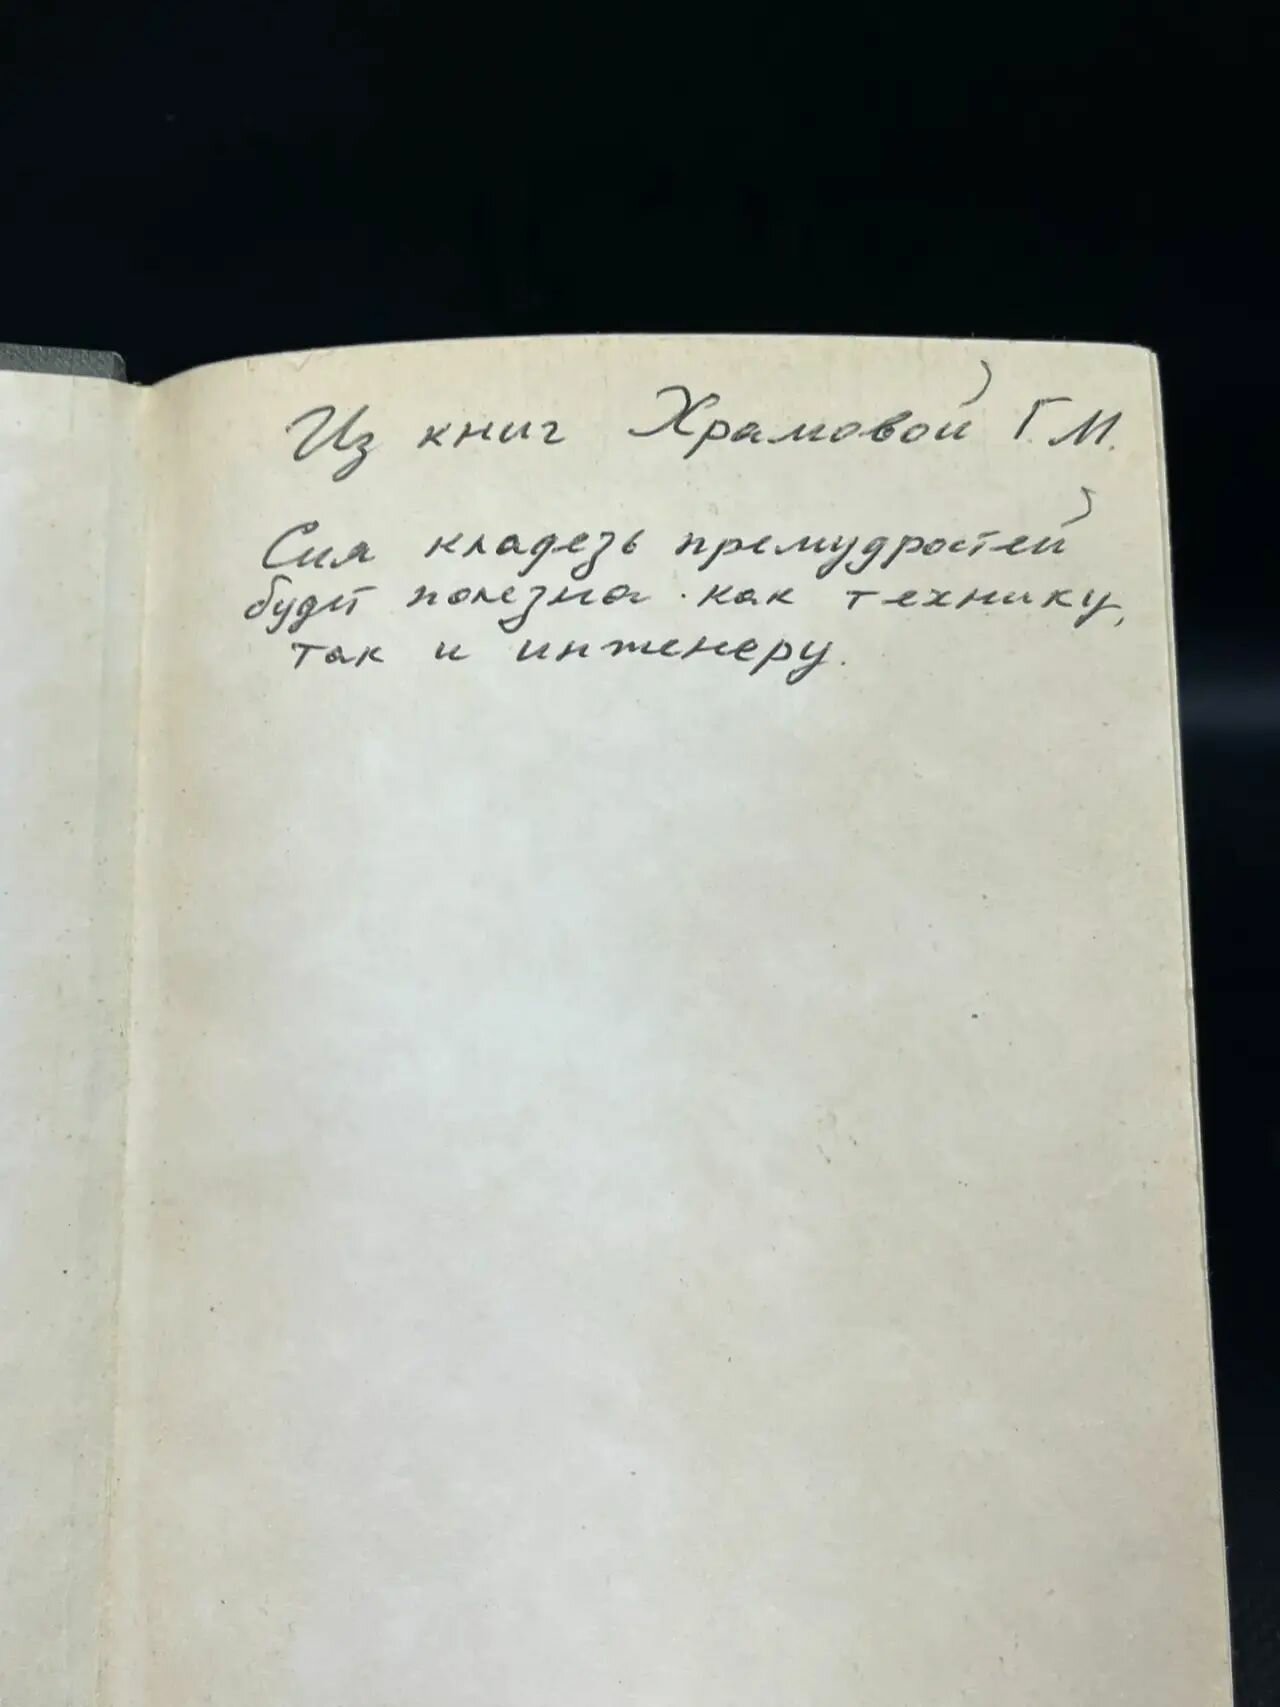 Из книг Храмовой Г.М.
Сия кладезь премудростей
будет полезна как технику,
так и инженеру.